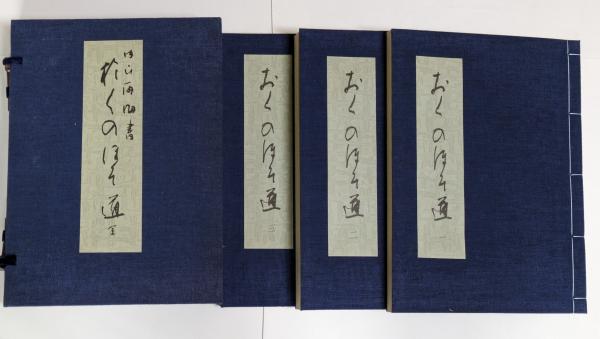 おくのほそ道 一
おくのほそ道 二
おくのほそ道 三
書
おくのほそ道 全